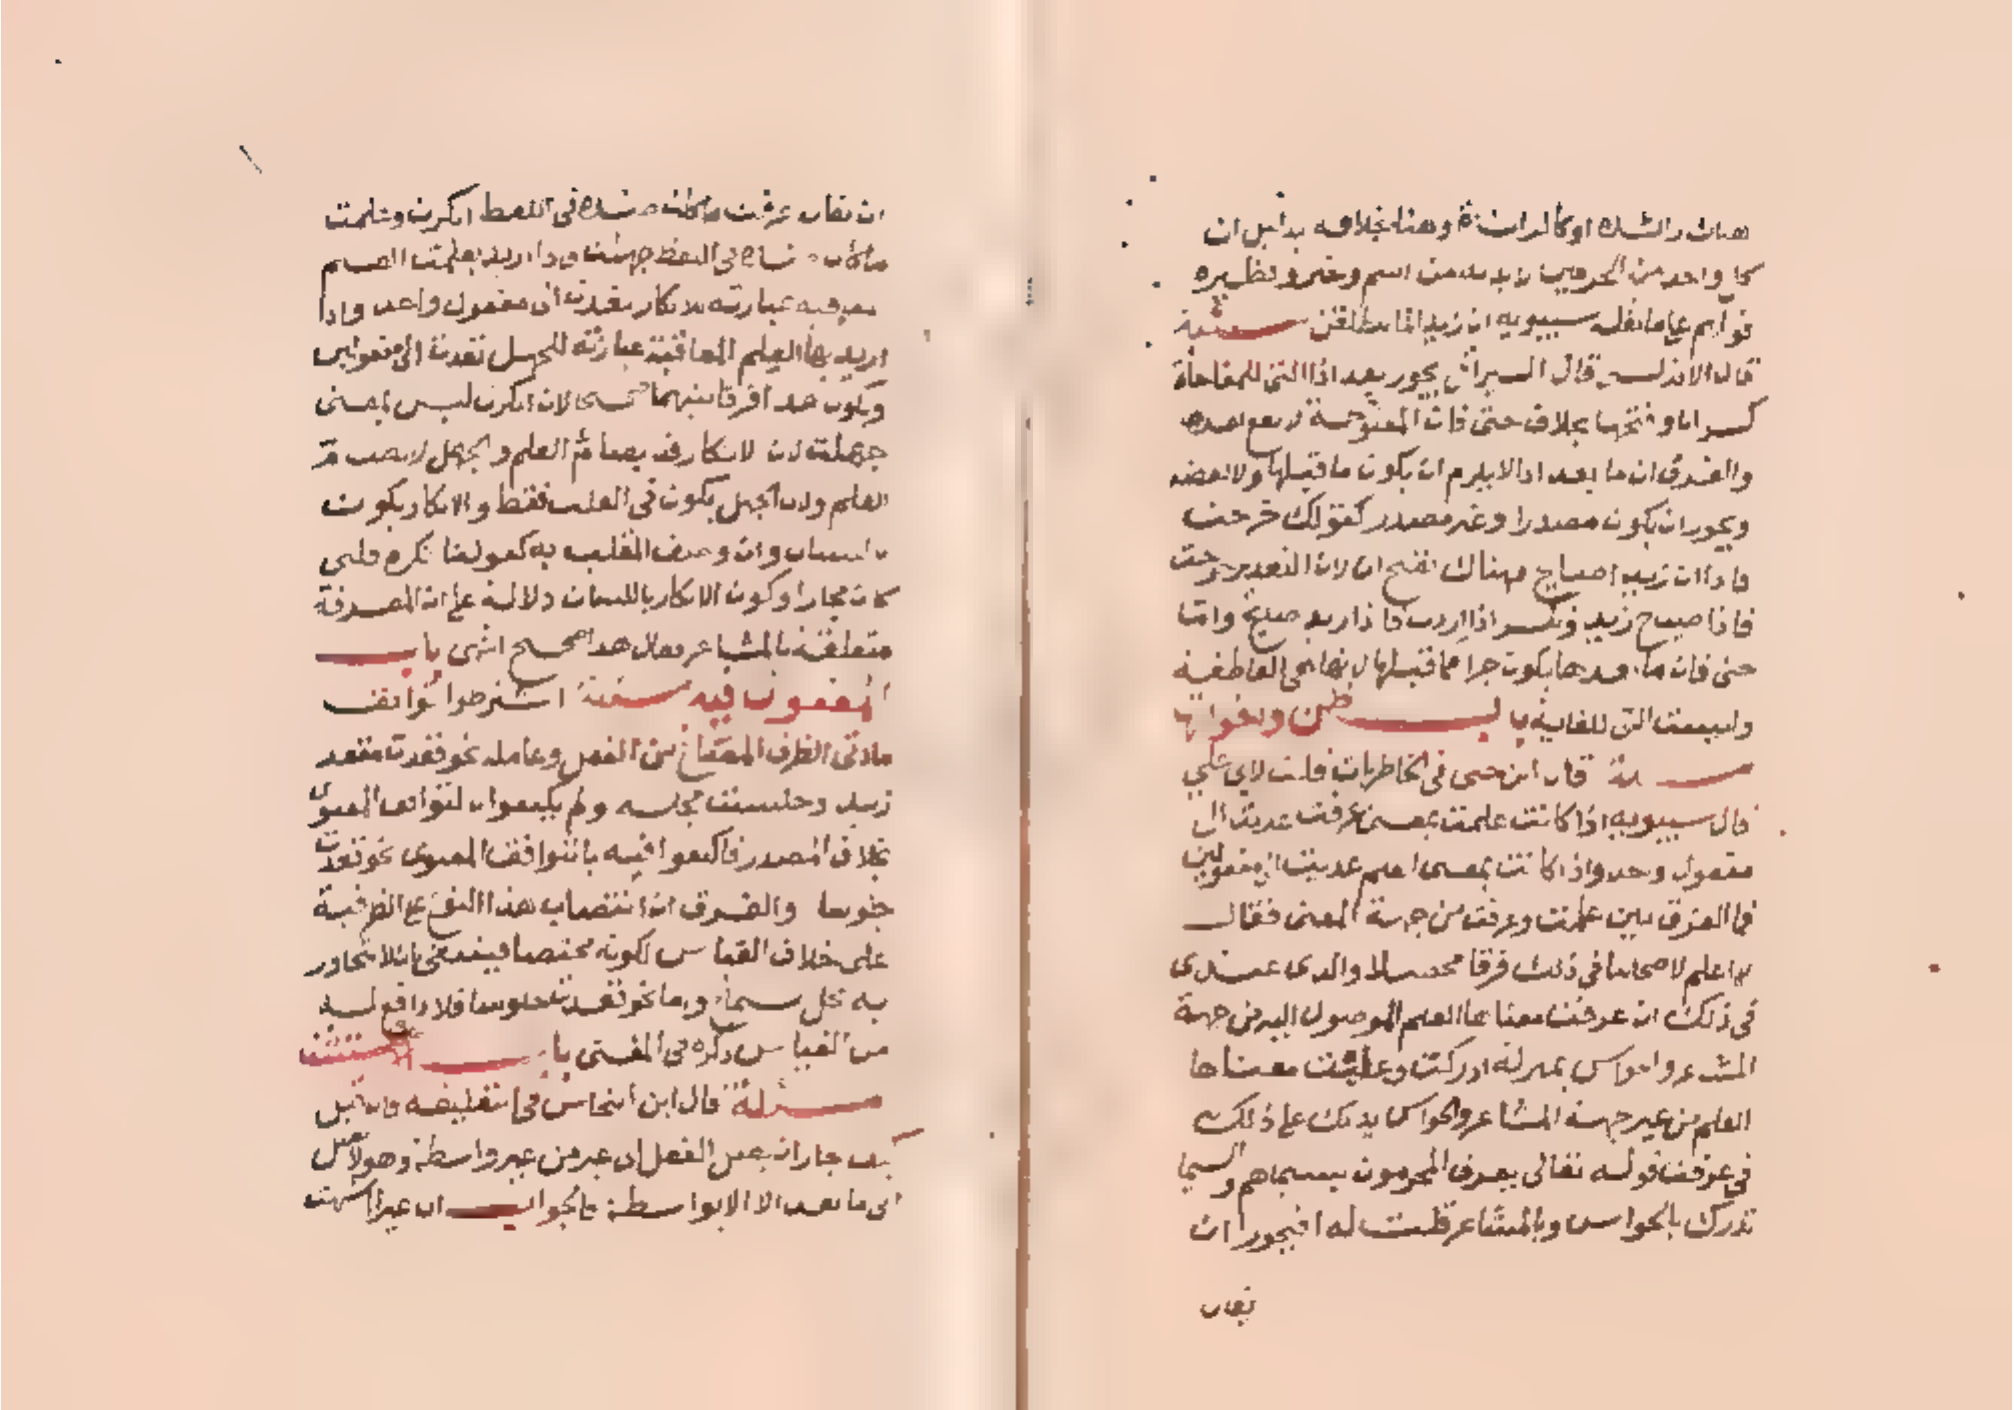 هناك راك الشدة او كالمرات وهنا بخلافه بدليل ان
كل واحد من الحرفين لابد له من اسم وخبر ونظيره
قولهم على ما نقله سيبويه ان زيدا لما لينطلقن مسئلة
قال الاندلسي قال السيرافي يجوز بعد اذا التي للمفاجأة
كسر ان وفتحها بخلاف حتى فان المفتوحة لا تقع بعده
والفرق ان ما بعد اذا لا يلزم ان يكون ما قبلها ولا بعضه
ويجوز ان يكون مصدرا وغير مصدر كقولك خرجت
فاذا ان زيد اصياح فهناك تفتح ان لان التقدير خرجت
فاذا صياح زيد وتكسر اذا اردت فاذا زيد صايح واما
حتى فان ما بعدها يكون جزا مما قبلها لانها هي العاطفة
وليست التي للغاية باب ظن واخواتها
مسئلة قال ابن جنى في الخاطريات قلت لابي علي
قال سيبويه اذا كانت علمت بمعنى عرفت عديت الى
مفعول واحد واذا كانت بمعنى العلم عديت الى مفعولين
فما الفرق بين علمت وعرفت من جهة المعنى فقال
لا اعلم لاصحابنا في ذلك فرقا محصلا والذي عندي
في ذلك ان عرفت معناها العلم الموصول اليه من جهة
المشاعر والحواس بمنزلة ادركت وعلمت معناها
العلم من غير جهة المشاعر والحواس يدلك على ذلك
في عرفت قوله تعالى يعرف المجرمون بسيماهم والسيما
تدرك بالحواس وبالمشاعر قلت له افيجوز ان
يقال
ان يقال عرفت ما كان ضده في اللفظ انكرت وعلمت
ما كان ضده في اللفظ جهلت فاذا اريد بعلمت العلم
المعاقبة عبارته للانكار تعدت الى مفعول واحد واذا
اريد بها العلم المعاقبة عبارته للجهل تعدت الى مفعولين
ويكون هذا فرقا بينهما صحيحا لان انكرت ليس بمعنى
جهلت لان الانكار قد يضام العلم والجهل لا يضام
العلم ولان الجهل يكون في القلب فقط والانكار يكون
باللسان وان وصف القلب به كقولنا نكره قلبي
كان مجازا وكون الانكار باللسان دلالة على ان المعرفة
متعلقة بالمشاعر فقال هذا صحيح انتهى باب
المفعول فيه مسئلة اشترطوا توافق
مادتي الظرف المصاغ من الفعل وعامله نحو قعدت مقعد
زيد وجلست مجلسه ولم يكتفوا بالتوافق المعنوي
بخلاف المصدر فاكتفوا فيه بالتوافق المعنوي نحو قعدت
جلوسا والفرق ان انتصاب هذا النوع على الظرفية
على خلاف القياس لكونه مختصا فينبغي ان لا يتجاوز
به محل سماع واما نحو قعدت جلوسا فلا دافع له
من القياس ذكره في المغني باب الاستثنا
مسئلة قال ابن النحاس في التعليقة فان قيل
كيف جاز ان يصل الفعل الى غير من غير واسطة وهو لا يصل
الى ما بعد الا الا بواسطة فالجواب ان غيرا اشبهت